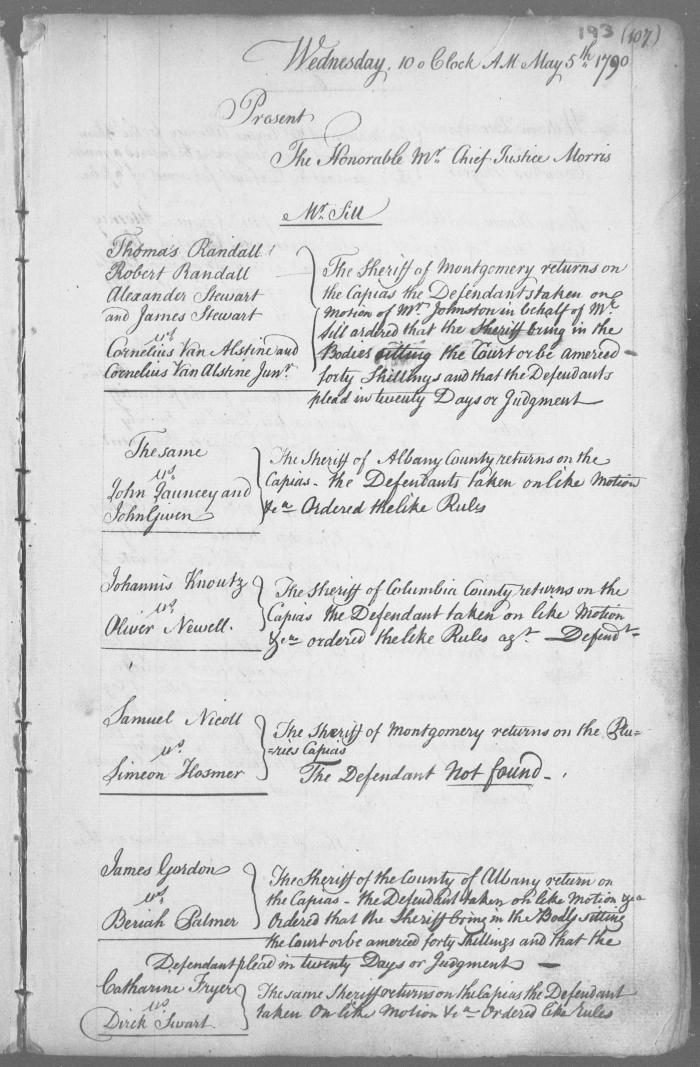 193 (107)
Wednesday, 10 o Clock AM May 5th 1790
Present
The Honorable Mr. Chief Justice Morris
Mr. Sill
Thomas Randall
Robert Randall
Alexander Stewart
and James Stewart
vs.
Cornelius Van Alstine and
Cornelius Van Alstine Junr.
The Sheriff of Montgomery returns on
the Capias the Defendants taken on
Motion of Mr. Johnston in behalf of Mr.
Sill ordered that the Sheriff bring in the
Bodies sitting the Court or be amerced
forty Shillings and that the Defendants
plead in twenty Days or Judgment
The same
vs.
John Jauncey and
John Gwen
The Sheriff of Albany County returns on the
Capias - the Defendants taken on like Motion
&ca Ordered the like Rules
Johannis Knoutz
vs.
Oliver Newell.
The Sheriff of Columbia County returns on the
Capias the Defendant taken on like Motion
&ca ordered the like Rules agt. Defendt
Samuel Nicoll
vs.
Simeon Hosmer
The Sheriff of Montgomery returns on the Plu=
=ries Capias
The Defendant Not found -
James Gordon
vs.
Beriah Palmer
The Sheriff of the County of Albany return on
the Capias - the Defendant taken on like Motion &ca
Ordered that the Sheriff bring in the Body sitting
the Court or be amerced forty Shillings and that the
Defendant plead in twenty Days or Judgment
Catharine Fryer
vs.
Dirck Swart
The same Sheriff returns on the Capias the Defendant
taken On like Motion &ca Ordered like Rules